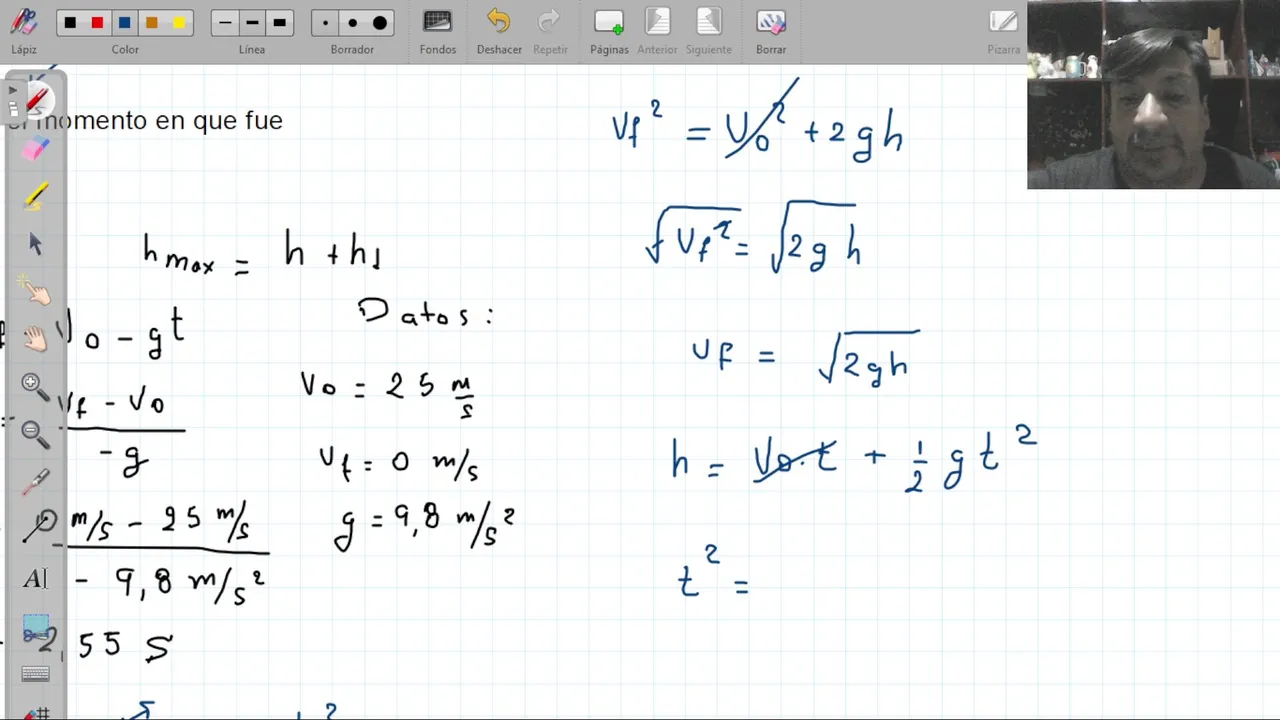 Lápiz
Color
Línea
Borrador
Fondos
Deshacer
Repetir
Páginas
Anterior
Siguiente
Borrar
Pizarra
momento en que fue
h max = h + h1
V0 - gt
Vf - V0
- g
m/s - 25 m/s
- 9,8 m/s²
2,55 s
Datos:
V0 = 25 m/s
Vf = 0 m/s
g = 9,8 m/s²
Vf² = V0² + 2gh
√Vf² = √2gh
Vf = √2gh
h = V0.t + 1/2 g t²
t² =